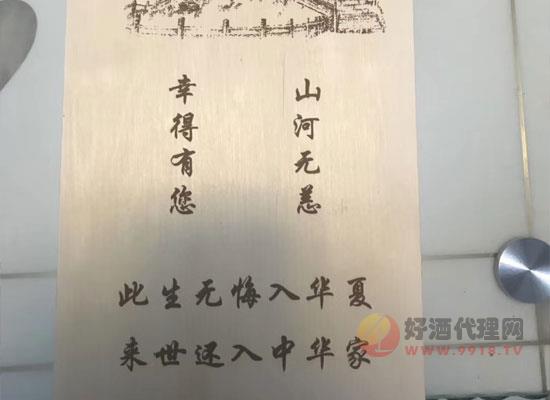 山河无恙
幸得有您
此生无悔入华夏
来世还入中华家
好酒代理网
www.9918.TV